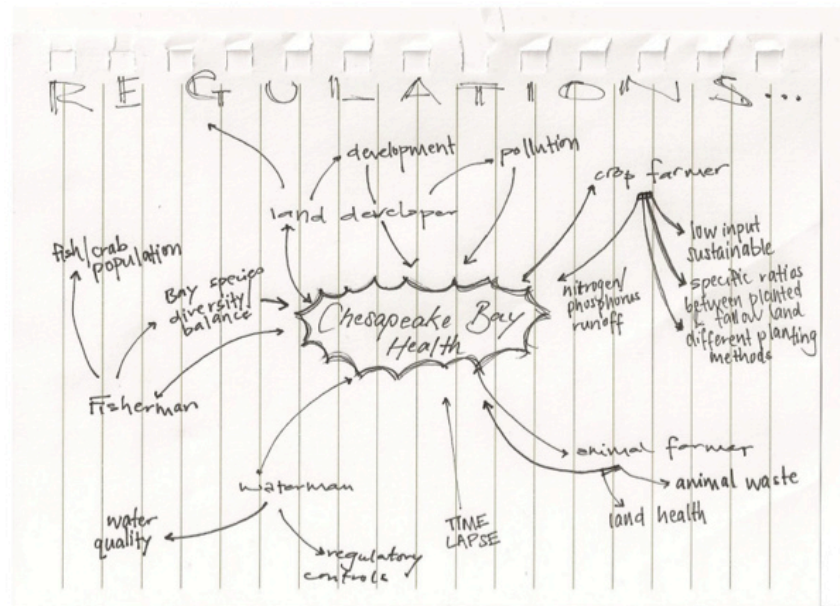 REGULATIONS...
development
pollution
crop farmer
land developer
low input
sustainable
fish/crab
population
specific ratios
between planted
& fallow land
different planting
methods
nitrogen/
phosphorus
runoff
Bay species
diversity/
balance
Chesapeake Bay
Health
Fisherman
animal farmer
animal waste
land health
waterman
water
quality
TIME
LAPSE
regulatory
controls